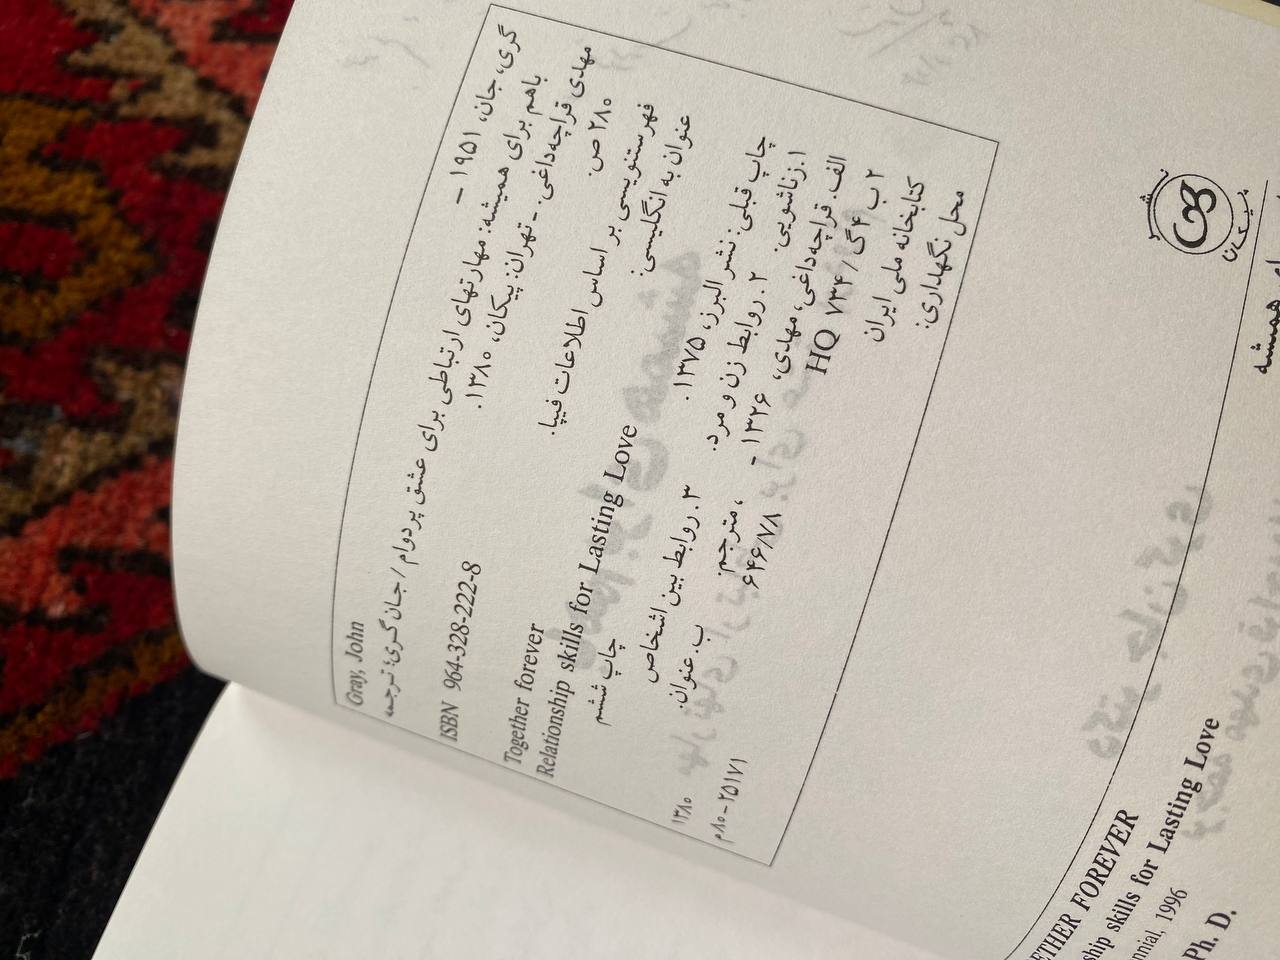 گری، جان، ۱۹۵۱ –
Gray, John
باهم برای همیشه: مهارتهای ارتباطی برای عشق پردوام / جان گری؛ ترجمه
مهدی قراچه‌داغی. - تهران: پیکان، ۱۳۸۰.
۲۸۰ ص.
ISBN 964-328-222-8
فهرستنویسی بر اساس اطلاعات فیپا.
عنوان به انگلیسی:
Together forever
Relationship skills for Lasting Love
چاپ قبلی: نشر البرز، ۱۳۷۵.
چاپ ششم
۱. زناشویی. ۲. روابط زن و مرد. ۳. روابط بین اشخاص
الف. قراچه‌داغی، مهدی، ۱۳۲۶ - ، مترجم. ب. عنوان.
۲ ب ۴ گ / HQ ۷۳۴ ۶۴۶/۷۸
۱۳۸۰
کتابخانه ملی ایران
م۸۰-۲۵۱۷۱
محل نگهداری:
نشر
پیکان
همیشه
ETHER FOREVER
ship skills for Lasting Love
nnial, 1996
Ph. D.